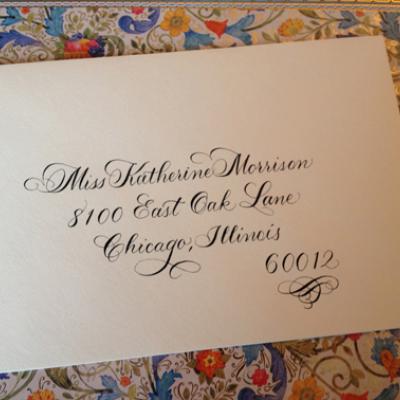 Miss Katherine Morrison
8100 East Oak Lane
Chicago, Illinois
60012